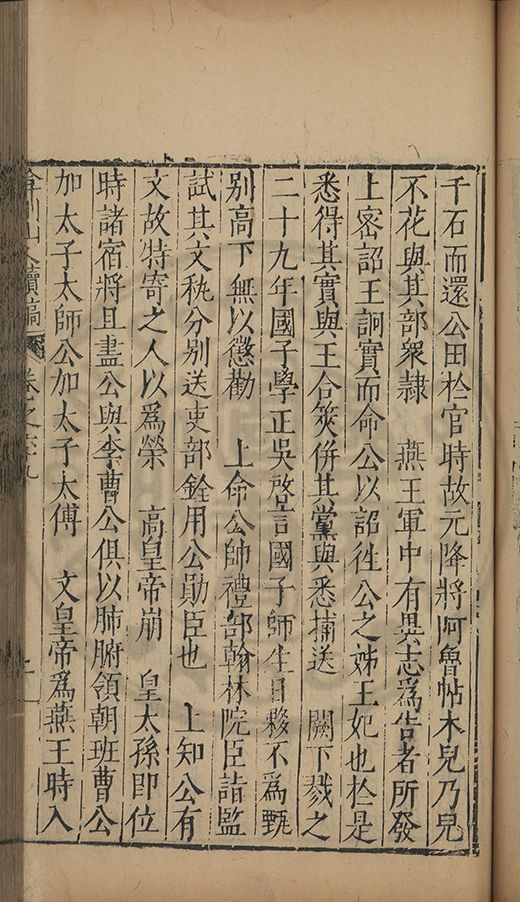 千石而還公田於官時故元降將阿魯帖木兒乃兒
不花與其部衆隷　燕王軍中有異志爲告者所發
上密詔王詗實而命公以詔徃公之姊王妃也於是
悉得其實與王合筴倂其黨與悉捕送　闕下戮之
二十九年國子學正吳啓言國子師生日夥不爲甄
别高下無以懲勸　上命公帥禮部翰林院臣詣監
試其文秇分别送吏部銓用公勛臣也　上知公有
文故特寄之人以爲榮　高皇帝崩　皇太孫即位
時諸宿將且盡公與李曹公俱以肺腑領朝班曹公
加太子太師公加太子太傅　文皇帝爲燕王時入
弇州山人續稿　卷之六十九